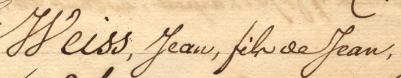 Weiss, Jean, fils de Jean,